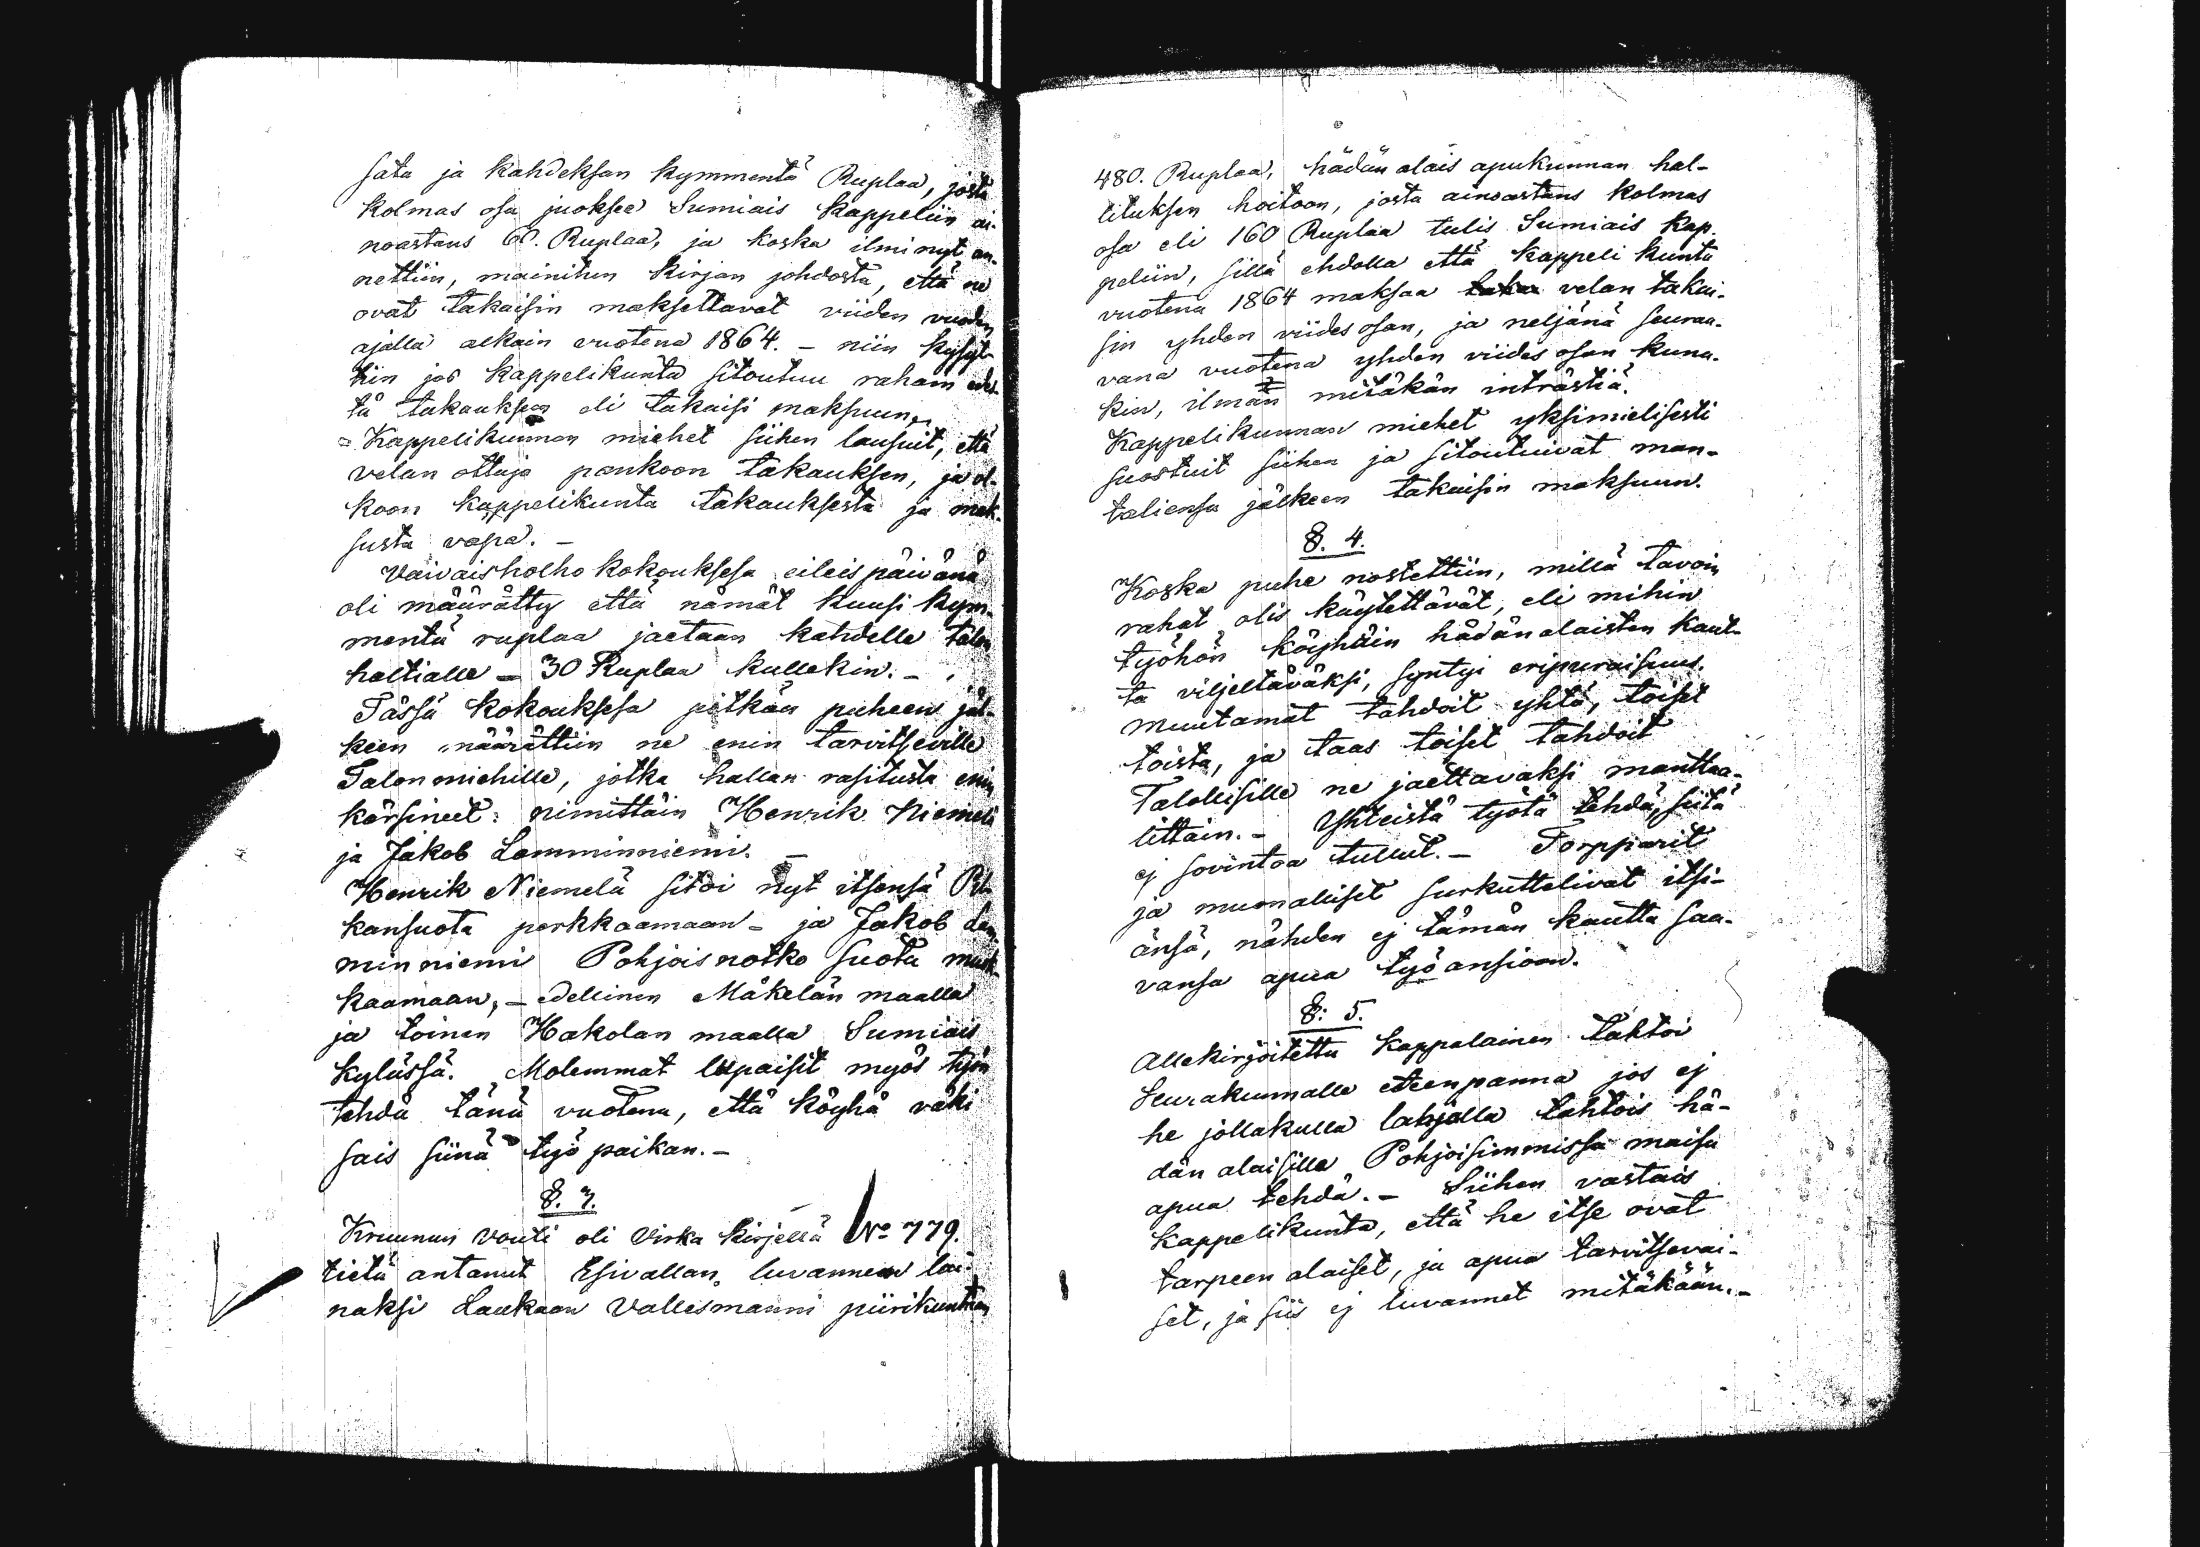 sata ja kahdeksan kymmentä Ruplaa, josta
kolmas osa juoksee Sumiais Kappeliin ai-
noastans 60. Ruplaa, ja koska ilmi nyt an-
nettiin, mainitun kirjan johdosta, että ne
ovat takaisin maksettavat viiden vuoden
ajalla alkain vuotena 1864. - niin kysyt-
tiin jos kappelikunta sitoutuu rahain edes-
tä takauksen eli takaisi maksuun.
= Kappelikunnan miehet siihen lausuit, että
velan ottaja pankoon takauksen, ja ol-
koon kappelikunta takauksesta ja mak-
susta vapa. -
Vaivaisholho kokouksesa eileis päivänä
oli määrätty että nämät kuusi kym-
mentä ruplaa jaetaan kahdelle talon
haltialle - 30 Ruplaa kullekin. -
Tässä kokouksesa pitkän puheen jäl-
keen määrättiin ne enin tarvitseville
Talon miehille, jotka hallan rasitusta enin
kärsineet: nimittäin Henrik Niemelä
ja Jakob Lamminniemi. -
Henrik Niemelä sitoi nyt itsensä Pit-
kansuota perkkaamaan - ja Jakob Lam-
minniemi Pohjoisnotko suota
kaamaan, - edellinen Mäkelän maalla
ja toinen Hakolan maalla Sumiais
kylässä. Molemmat lupaisit myös työn
tehdä tänä vuotena, että köyhä väki
sais siinä työ paikan. -
§. 3.
Kruunun vouti oli Virka kirjellä No 779.
tietä antanut Esivallan luvanneen lai-
naksi Laukaan Vallesmanni piirikuntaan
480. Ruplaa, hädän alais apukunnan hal-
lituksen hoitoon, josta ainoastans kolmas
osa eli 160 Ruplaa tulis Sumiais Kap-
peliin, sillä ehdolla että kappeli kunta
vuotena 1864 maksaa velan takai-
sin yhden viides osan, ja neljänä seuraa-
vana vuotena yhden viides osan kuna-
kin, ilman mitäkän inträstiä.
Kappelikunnan miehet yksimielisesti
suostuit siihen ja sitoutuivat man-
taliensa jälkeen takaisin maksuun.
§. 4.
Koska puhe nostettiin, millä tavoin
rahat olis käytettävät, eli mihin
työhön köyhäin hädänalaisten kaut-
ta viljeltäväksi, syntyi eripuraisuus.
Muutamat tahdoit yhtä, toiset
toista, ja taas toiset tahdoit
Talollisille ne jaettavaksi manttaa-
littain. - Yhteistä työtä tehdä, siitä
ej sovintoa tullut. - Torpparit
ja muonalliset surkuttelivat itsi-
änsä, nähden ej tämän kautta saa-
vansa apua työ ansioon.
§: 5.
Allekirjoitettu kappalainen tahtoi
Seurakunnalle eteenpanna jos ej
he jollakulla lahjalla tahtois hä-
dän alaisille Pohjoisimmissa maisa
apua tehdä. - Siihen vastais
kappelikunta, että he itse ovat
tarpeen alaiset, ja apua tarvitsevai-
set, ja siis ej luvannet mitäkään. -